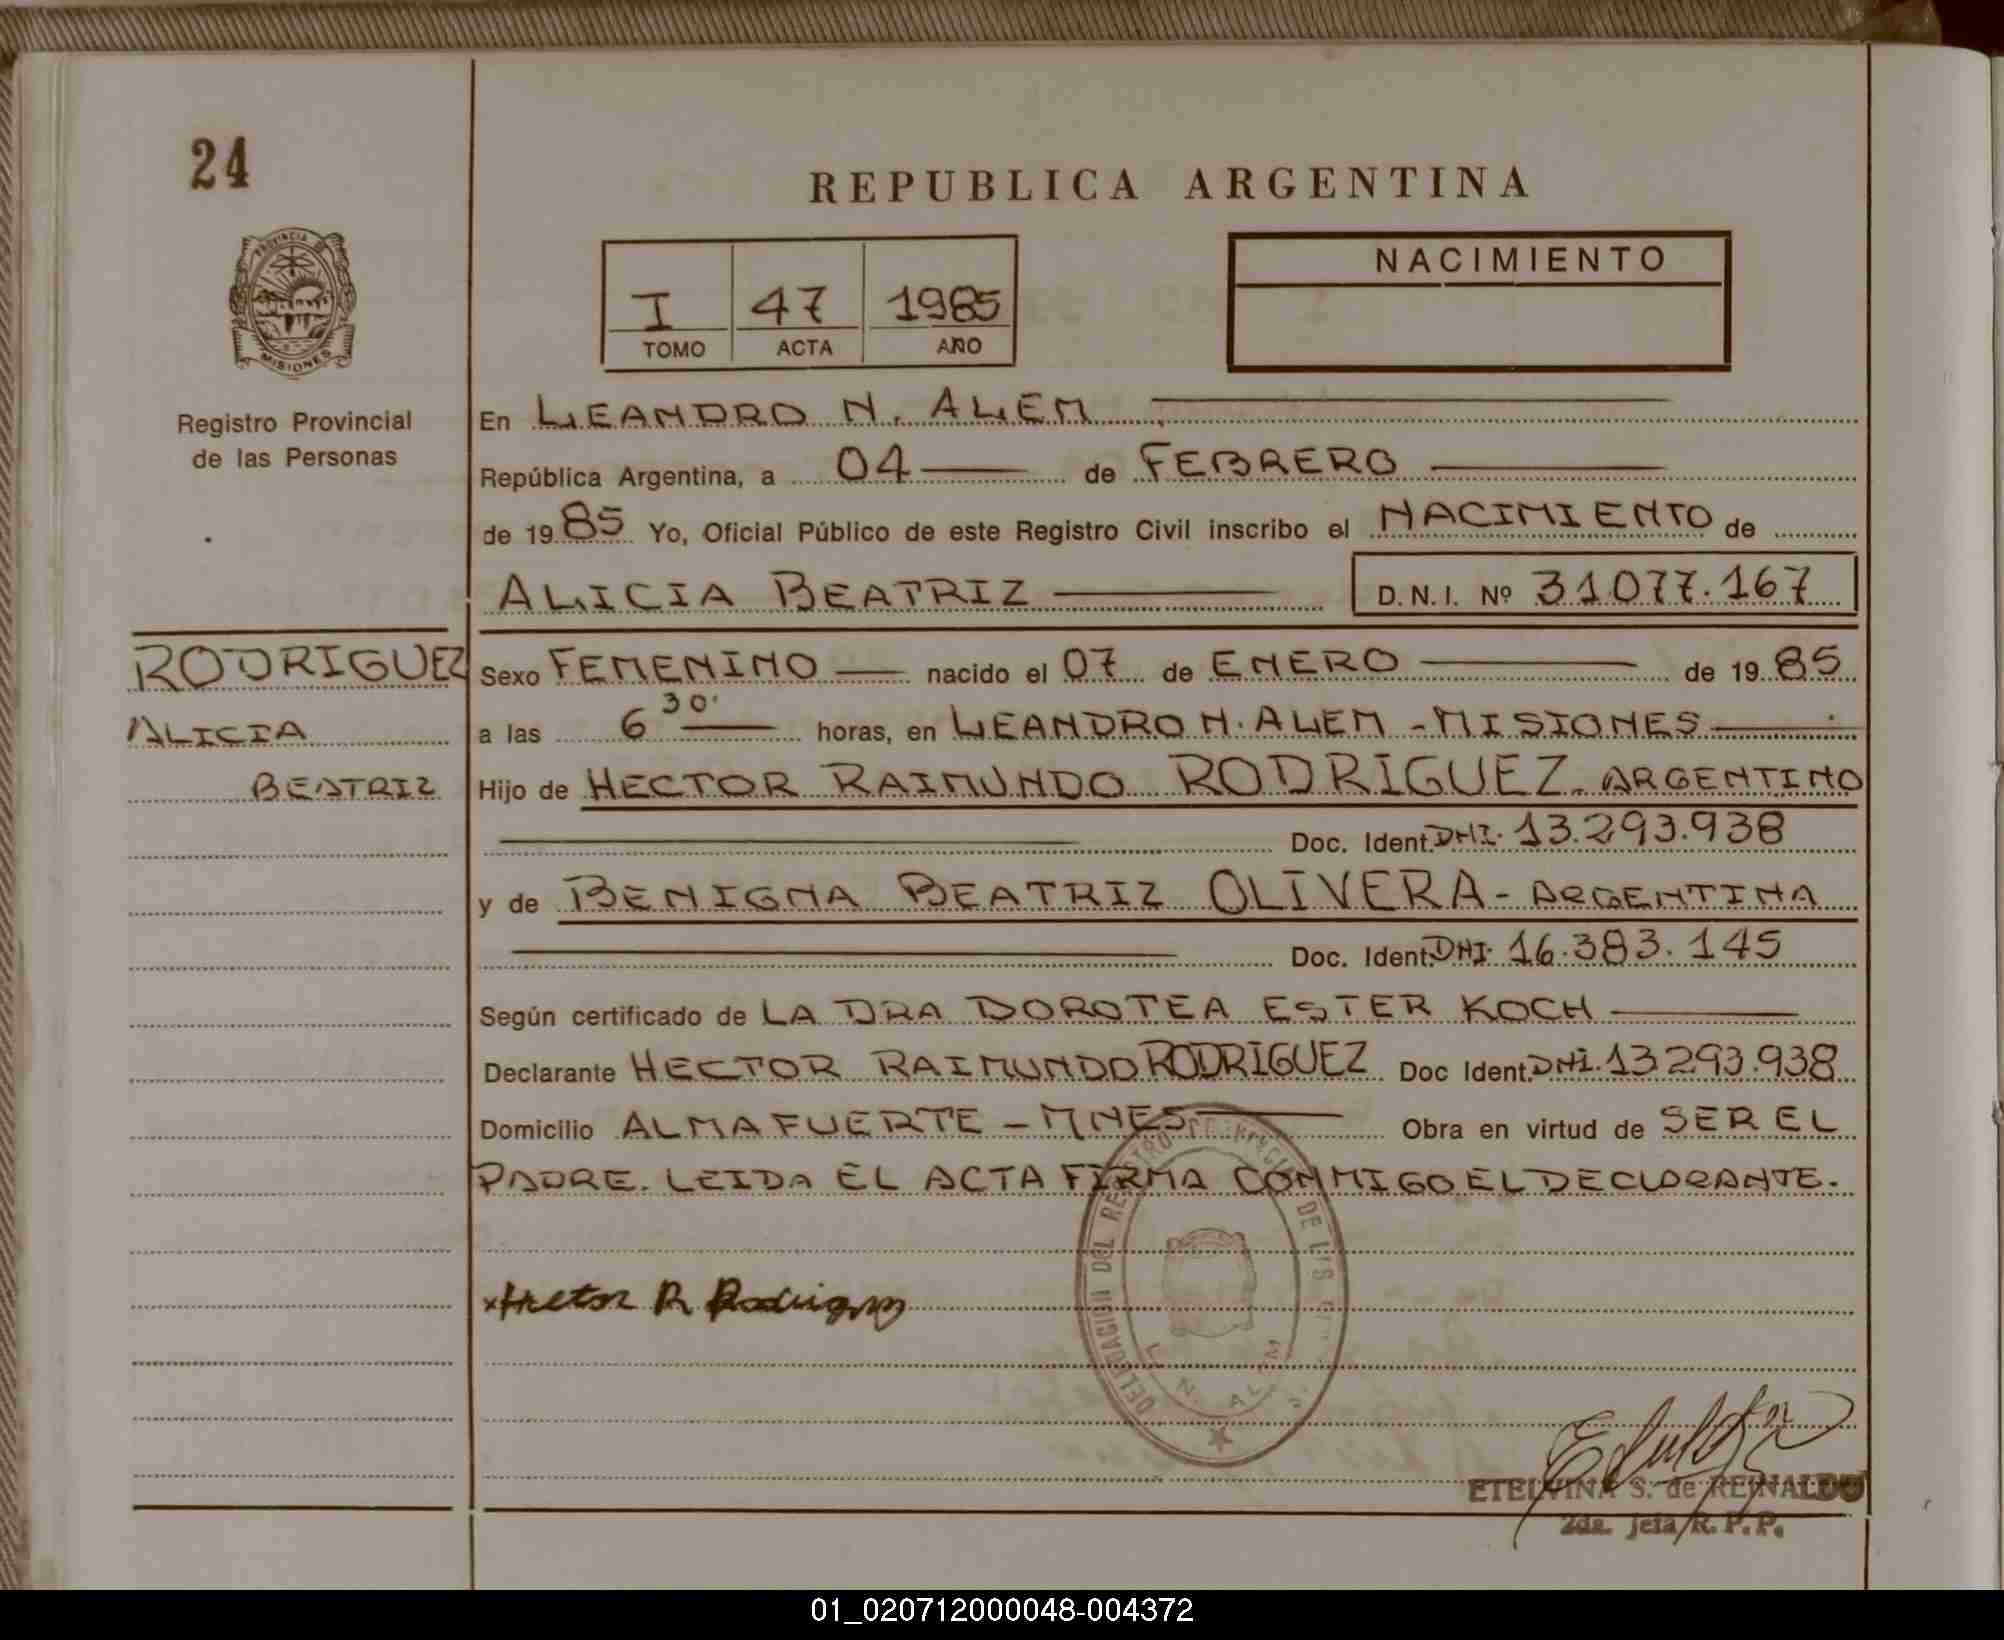 24
PROVINCIA DE
MISIONES
Registro Provincial
de las Personas
RODRIGUEZ
ALICIA
BEATRIZ
REPUBLICA ARGENTINA
I 47 1985
TOMO ACTA AÑO
NACIMIENTO
En LEANDRO N. ALEM
República Argentina, a 04 de FEBRERO
de 1985 Yo, Oficial Público de este Registro Civil inscribo el NACIMIENTO de
ALICIA BEATRIZ D.N.I. Nº 31077.167
Sexo FEMENINO nacido el 07 de ENERO de 1985
a las 6 30' horas, en LEANDRO N. ALEM - MISIONES
Hijo de HECTOR RAIMUNDO RODRIGUEZ. ARGENTINO
Doc. Ident. DNI. 13.293.938
y de BENIGNA BEATRIZ OLIVERA - ARGENTINA
Doc. Ident. DNI. 16.383.145
Según certificado de LA DRA DOROTEA ESTER KOCH
Declarante HECTOR RAIMUNDO RODRIGUEZ Doc Ident. DNI. 13293.938
Domicilio ALMAFUERTE - MNES Obra en virtud de SER EL
PADRE. LEIDA EL ACTA FIRMA CONMIGO EL DECLARANTE.
DELEGACION DEL REGISTRO DE
L. N. ALEM
x Hector R Rodriguez
ETELVINA S. de REINALDO
2da. Jefa R. P. P.
01_020712000048-004372